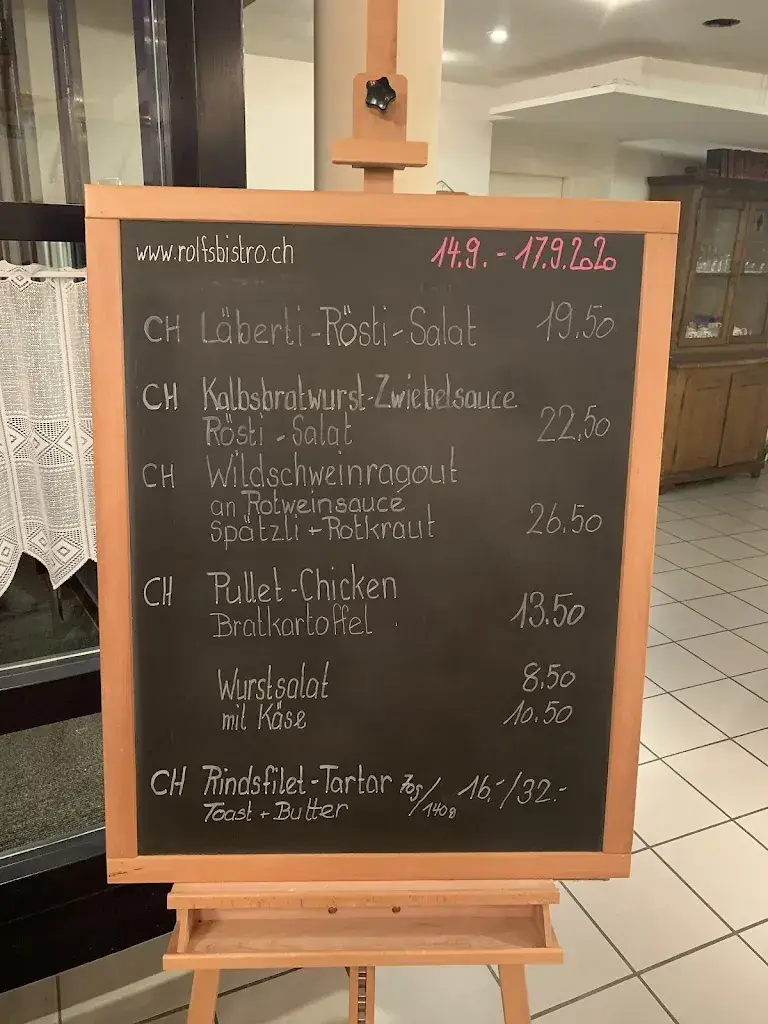 www.rolfsbistro.ch 14.9. - 17.9.2020
CH Läberli-Rösti-Salat 19.50
CH Kalbsbratwurst-Zwiebelsauce
Rösti-Salat 22.50
CH Wildschweinragout
an Rotweinsauce
Spätzli + Rotkraut 26.50
CH Pullet-Chicken
Bratkartoffel 13.50
Wurstsalat 8.50
mit Käse 10.50
CH Rindsfilet-Tartar 70g/140g 16.-/32.-
Toast + Butter